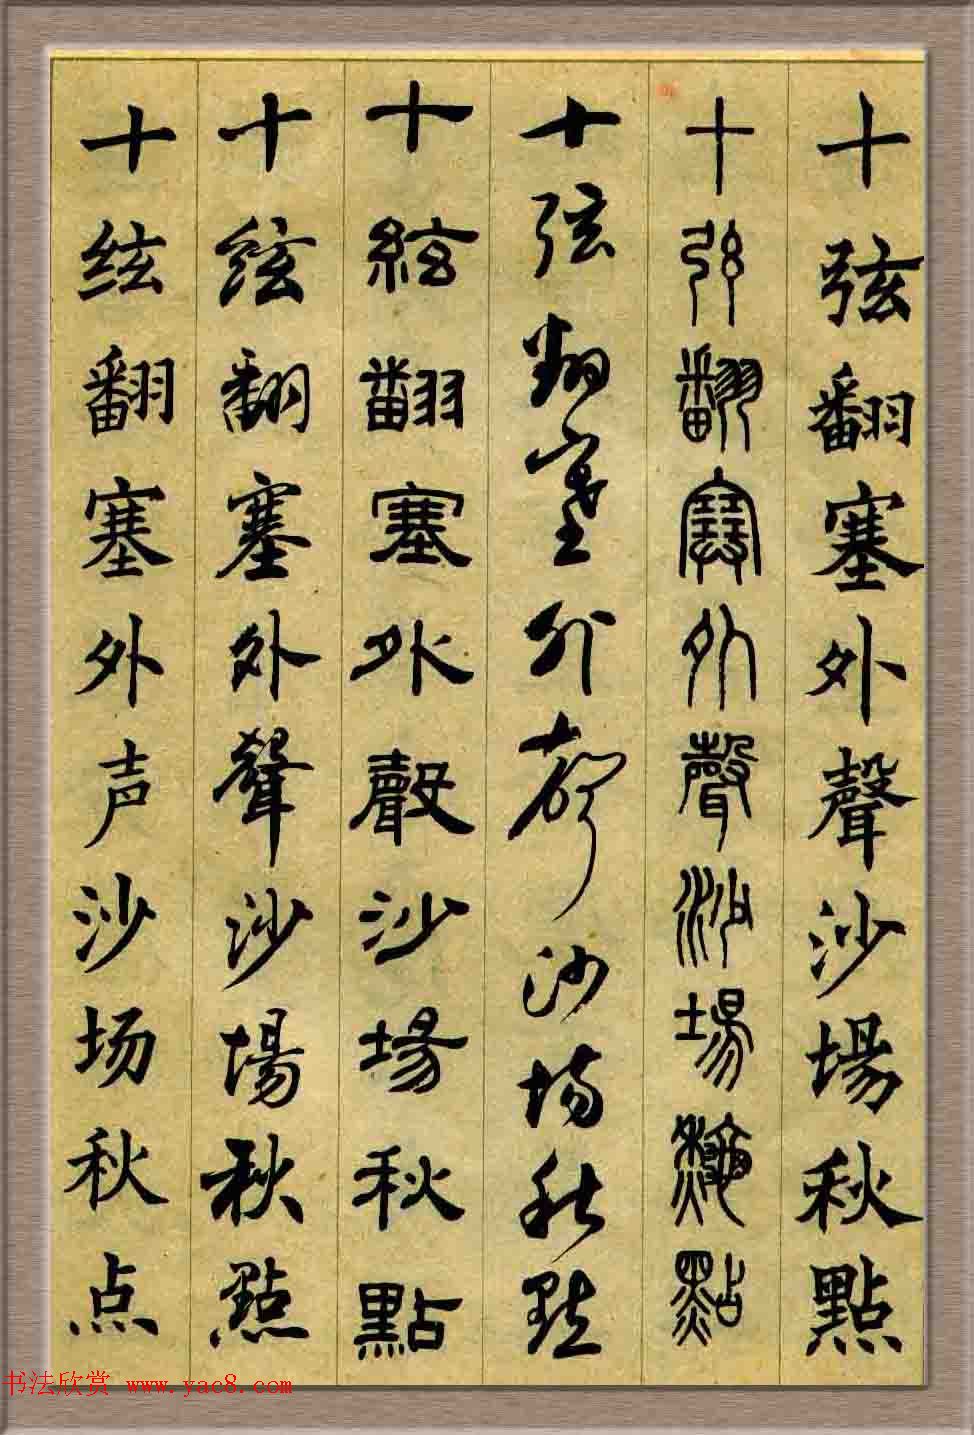 十弦翻塞外聲沙場秋點
十弦翻塞外聲沙場秋點
十弦翻塞外聲沙場秋點
十絃翻塞外聲沙場秋點
十絃翻塞外聲沙場秋點
十纟玄翻塞外声沙场秋点
书法欣赏 www.yac8.com